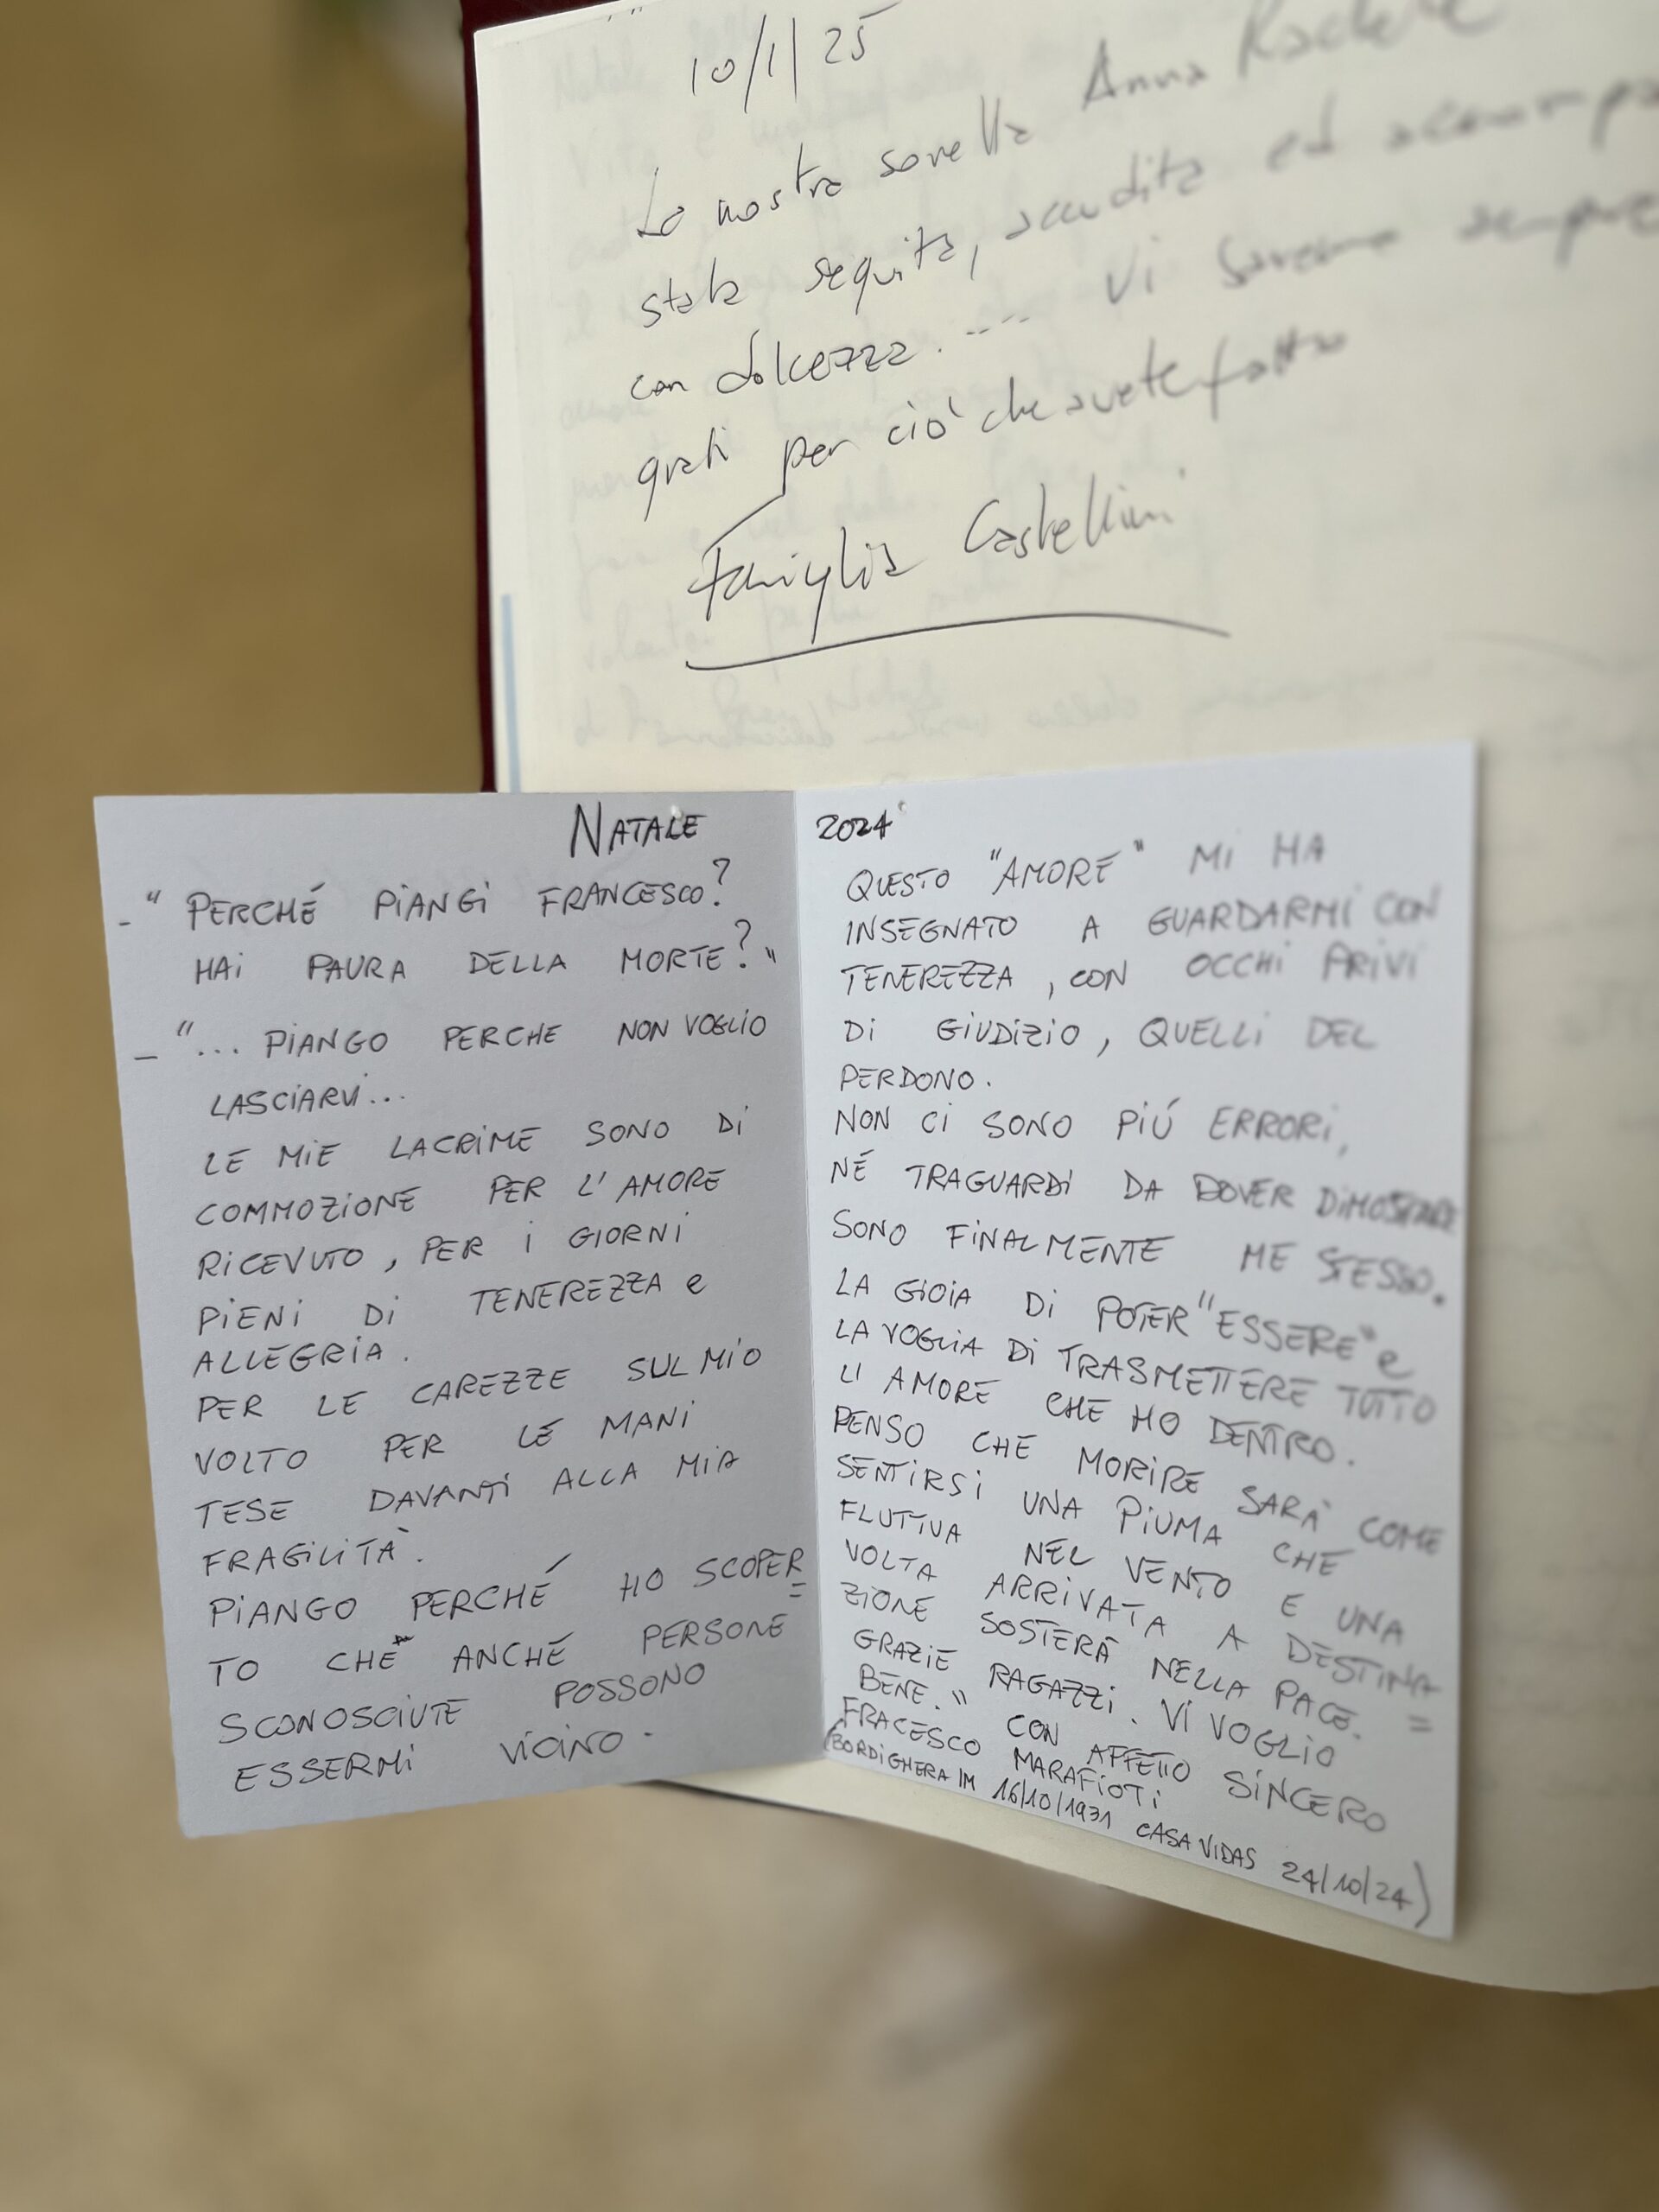 10/1/25
La nostra sorella Anna Rachele
stata seguita, accudita ed accompa
con dolcezza..---- Vi saremo sempre
grati per ciò che avete fatto
Famiglia Castellini
NATALE 2024
- "PERCHÉ PIANGI FRANCESCO?
HAI PAURA DELLA MORTE?"
- "... PIANGO PERCHE NON VOGLIO
LASCIARVI...
LE MIE LACRIME SONO DI
COMMOZIONE PER L'AMORE
RICEVUTO, PER I GIORNI
PIENI DI TENEREZZA e
ALLEGRIA.
PER LE CAREZZE SUL MIO
VOLTO PER LE MANI
TESE DAVANTI ALLA MIA
FRAGILITÀ.
PIANGO PERCHÉ HO SCOPER=
TO CHE ANCHÉ PERSONE
SCONOSCIUTE POSSONO
ESSERMI VICINO.
QUESTO "AMORE" MI HA
INSEGNATO A GUARDARMI CON
TENEREZZA, CON OCCHI PRIVI
DI GIUDIZIO, QUELLI DEL
PERDONO.
NON CI SONO PIÚ ERRORI,
NÉ TRAGUARDI DA DOVER DIMOSTRARE
SONO FINALMENTE ME STESSO.
LA GIOIA DI POTER "ESSERE" e
LA VOGLIA DI TRASMETTERE TUTTO
L'AMORE CHE HO DENTRO.
PENSO CHE MORIRE SARÀ COME
SENTIRSI UNA PIUMA CHE
FLUTTUA NEL VENTO E UNA
VOLTA ARRIVATA A DESTINA=
ZIONE SOSTERÀ NELLA PACE.
GRAZIE RAGAZZI. VI VOGLIO
BENE." CON AFFETTO SINCERO
FRACESCO MARAFIOTI
(BORDIGHERA IM 16/10/1931 CASA VIDAS 24/10/24)